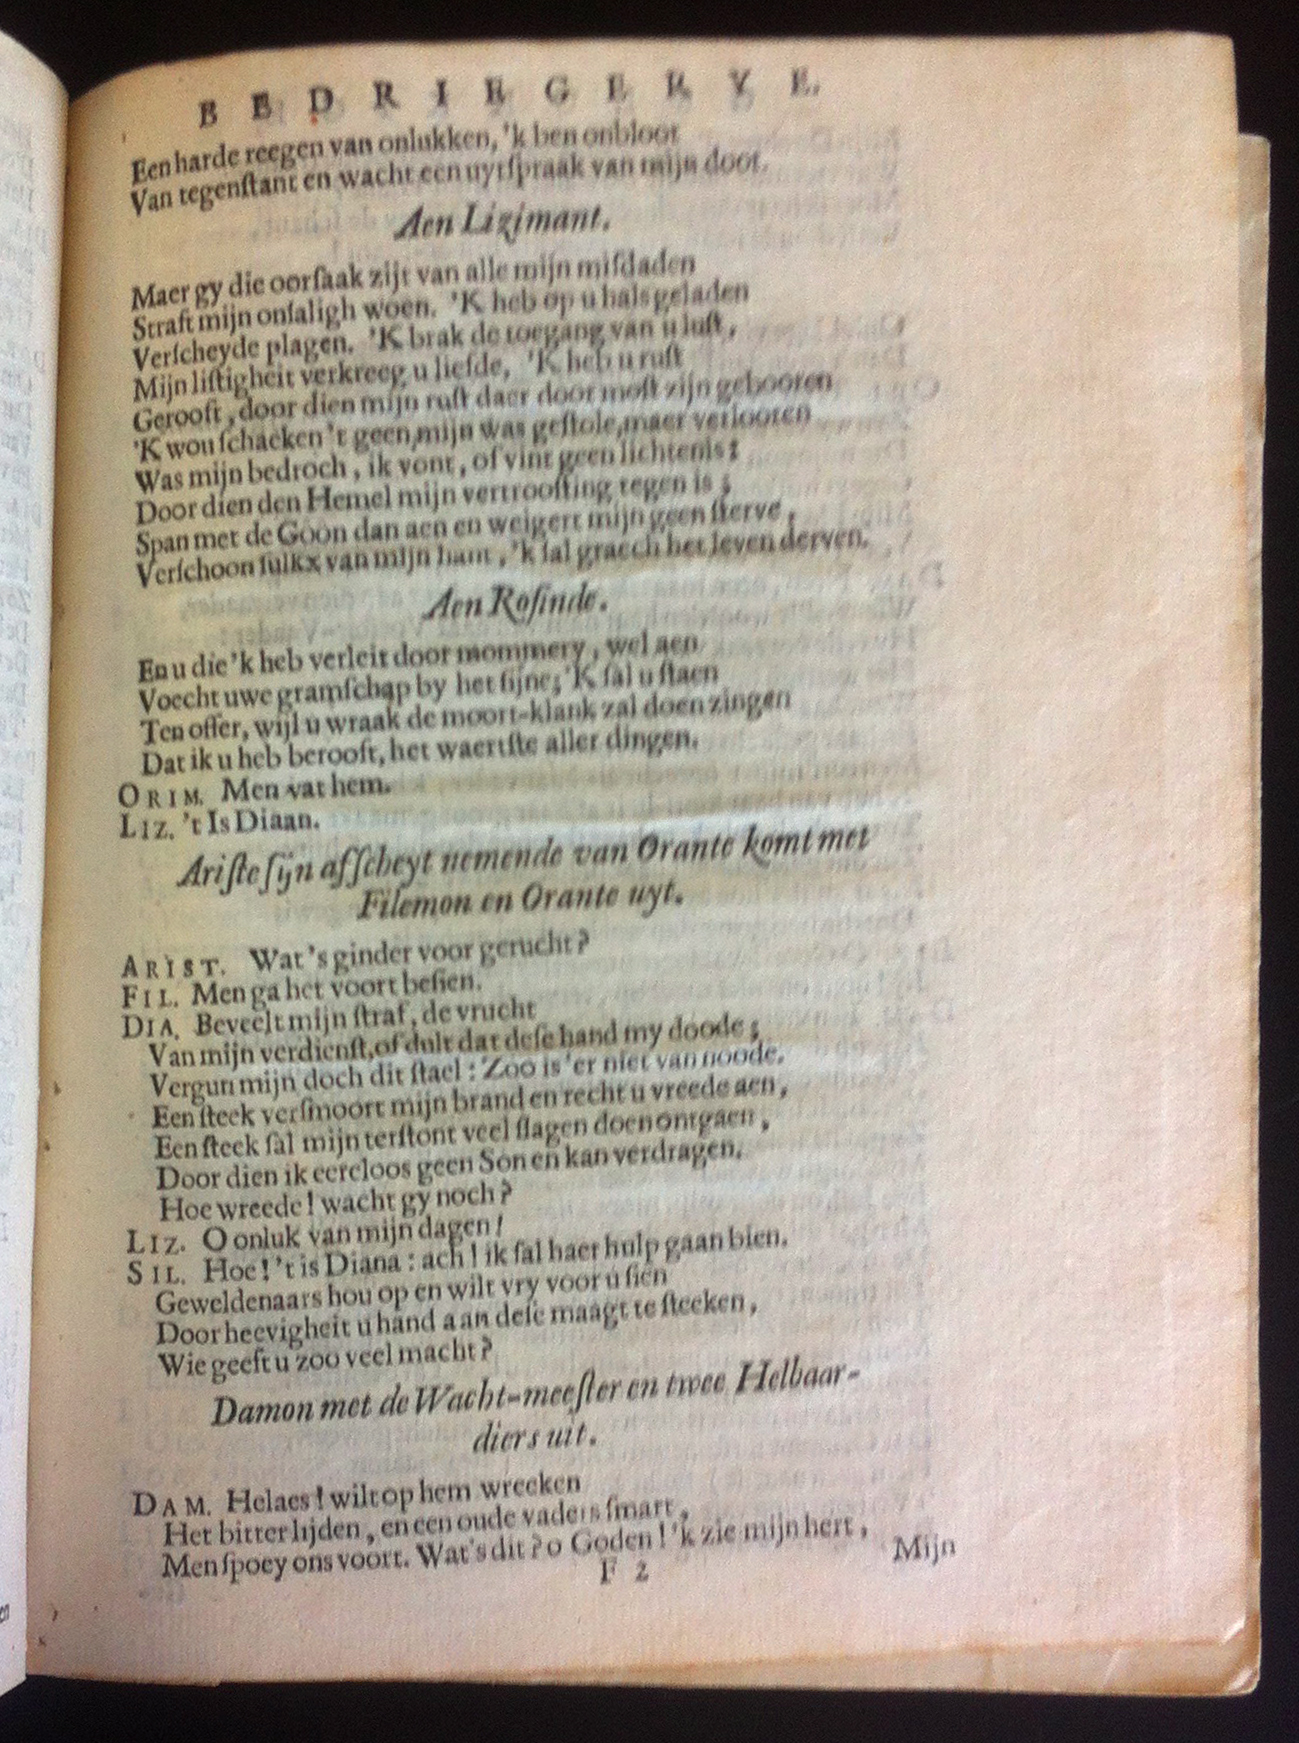 BEDRIEGERYE.
Een harde reegen van onlukken, 'k ben onbloot
Van tegenſtant en wacht een uytſpraak van mijn doot.
Aen Lizimant.
Maer gy die oorſaak zijt van alle mijn miſdaden
Straft mijn onſaligh woen. 'K heb op u hals geladen
Verſcheyde plagen. 'K brak de toegang van u luſt,
Mijn liſtigheit verkreeg u liefde, 'K heb u ruſt
Gerooft, door dien mijn ruſt daer door moſt zijn gebooren
'K wou ſchaeken 't geen mijn was geſtole, maer verlooren
Was mijn bedroch, ik vont, of vint geen lichtenis:
Door dien den Hemel mijn vertrooſting tegen is;
Span met de Goon dan aen en weigert mijn geen ſterve,
Verſchoon ſulkx van mijn hant, 'k ſal graech het leven derven.
Aen Roſinde.
En u die 'k heb verleit door mommery, wel aen
Voecht uwe gramſchap by het ſijne; 'K ſal u ſtaen
Ten offer, wijl u wraak de moort-klank zal doen zingen
Dat ik u heb berooft, het waertſte aller dingen.
ORIM. Men vat hem.
LIZ. 't Is Diaan.
Ariſte ſijn afſcheyt nemende van Orante komt met
Filemon en Orante uyt.
ARIST. Wat 's ginder voor gerucht?
FIL. Men ga het voort beſien.
DIA. Beveelt mijn ſtraf, de vrucht
Van mijn verdienſt, of dult dat deſe hand my doode;
Vergun mijn doch dit ſtael: Zoo is 'er niet van noode.
Een ſteek verſmoort mijn brand en recht u vreede aen,
Een ſteek ſal mijn terſtont veel ſlagen doen ontgaen,
Door dien ik eereloos geen Son en kan verdragen.
Hoe wreede! wacht gy noch?
LIZ. O onluk van mijn dagen!
SIL. Hoe! 't is Diana: ach! ik ſal haer hulp gaan bien.
Geweldenaars hou op en wilt vry voor u ſien
Door heevigheit u hand aan deſe maagt te ſteeken,
Wie geeft u zoo veel macht?
Damon met de Wacht-meeſter en twee Helbaar-
diers uit.
DAM. Helaes! wilt op hem wreeken
Het bitter lijden, en een oude vaders ſmart,
Men ſpoey ons voort. Wat's dit? o Goden! 'k zie mijn hert,
F 2
Mijn